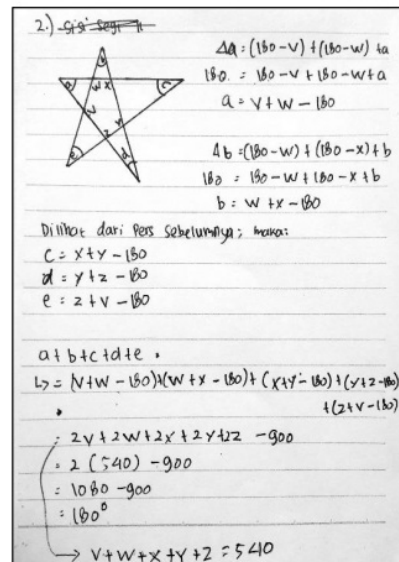 2.) Sisi segi
b
w x
a
c
v
y
z
e
d
Δa = (180-v) + (180-w) + a
180 = 180-v + 180-w + a
a = v + w - 180
Δb = (180-w) + (180-x) + b
180 = 180-w + 180-x + b
b = w + x - 180
Dilihat dari Pers Sebelumnya; maka:
c = x + y - 180
d = y + z - 180
e = z + v - 180
a + b + c + d + e .
↳ = (v+w-180) + (w+x-180) + (x+y-180) + (y+z-180)
+ (z+v-180)
= 2v + 2w + 2x + 2y + 2z - 900
= 2 (540) - 900
= 1080 - 900
= 180°
→ v + w + x + y + z = 540